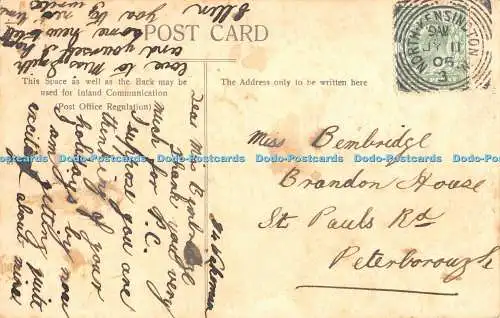 POST CARD
This Space as well as the Back may be
used for Inland Communication
(Post Office Regulation)
The Address only to be written here
NORTH KENSINGTON
JY 11
05
3
Miss Bembridge
Brandon House
St Pauls Rd
Peterborough
Dear Miss Bembridge
Thank you very
much for P.C.
I suppose you are
thinking of your
holidays by now
am getting quite
excited about mine
love to Miss
and yourself I
some
you to
Ellen
Dodo-Postcards Dodo-Postcards Dodo-Postcards Dodo-Postcards Dodo-Postcards